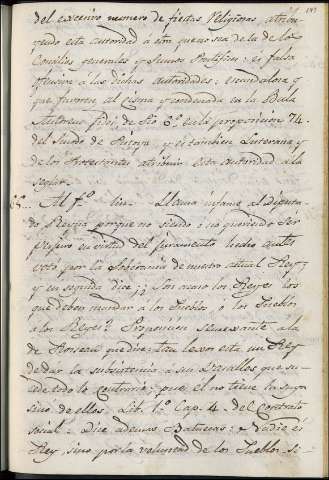 del excesivo numero de fiestas Religiosas, atribu-
yendo esta autoridad à otro que no sea de la de los
Concilios generales y Sumos Pontifices: es falsa
ofensiva à las dichas autoridades, escandalosa y
que favorece al cisma y condenada en la Bula
Auctorem fidei de Pio 6º. en la proposicion 74.
del Sinodo de Pistoya y es tambien Luterana y
de los Protestantes atribuir esta autoridad à la
seglar.
Al fº. Llama infame al Diputa-
do Reyna porque no siendo ò no queriendo ser
en virtud del juramento hecho antes
votó por la Soberania de nuestro actual Rey;
y en seguida dice ¿¿ Son acaso los Reyes los
que deben mandar a los Pueblos ò los Pueblos
a los Reyes? Proposicion semejante à la
de Roseau que dice: tan lexos està un Rey
de dar la subsistencia à sus Vasallos que su-
cede todo lo contrario; pues èl no tiene la suya
sino de ellos. Lib. 1º. Cap. 4. del Contrato
social: dice ademas Batuecas: Nadie es
Rey, sino por la voluntad de los Pueblos: si-